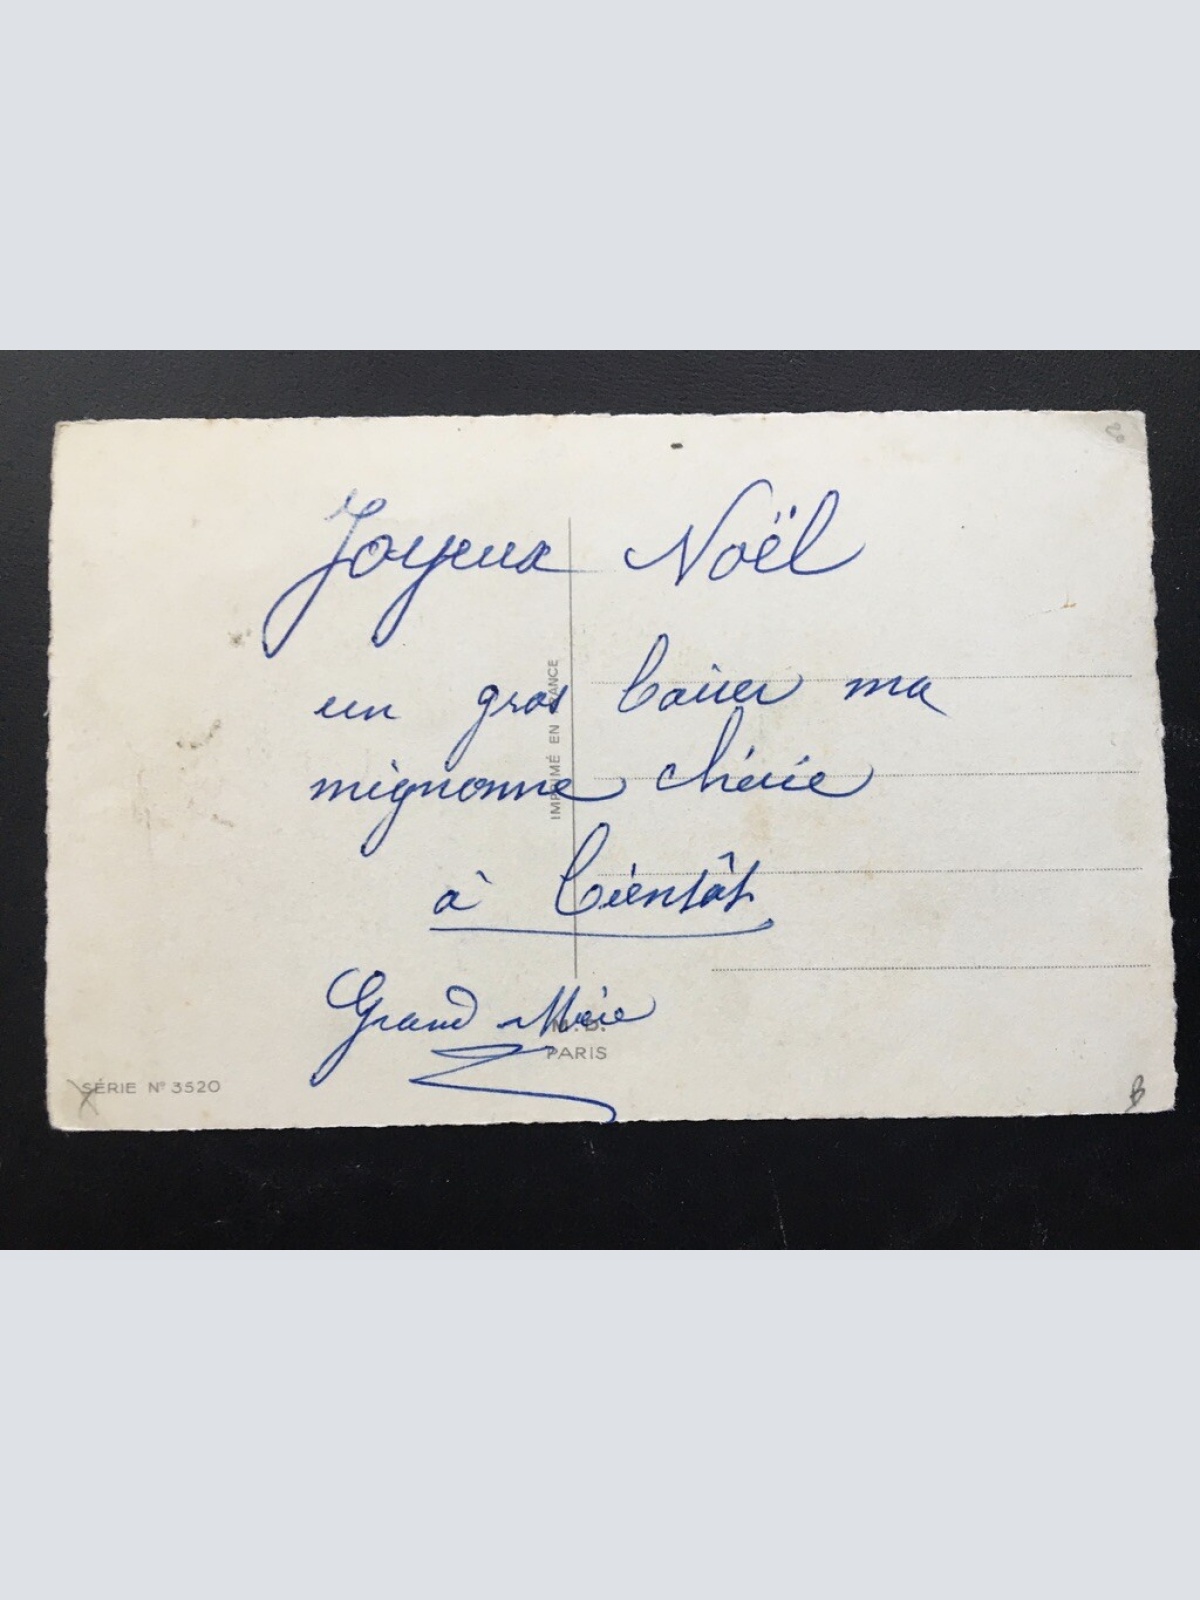 Joyeux Noël
un gros baiser ma
mignonne chérie
à bientôt
Grand-Mère
IMPRIMÉ EN FRANCE
M.D.
PARIS
SÉRIE N° 3520